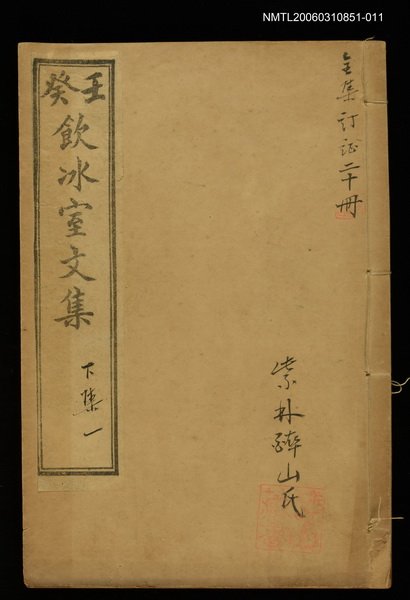 NMTL20060310851-011
全集訂證二十冊
紫林醉山氏
壬癸
飲冰室文集
下集一